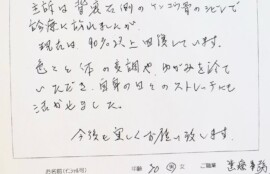 主訴は背表左側のケンコウ骨のシビレで
診療に訪れましたが
現在は90%以上回復しています。
色々と体の変調や、ゆがみを診て
いただき、自身の日々のストレッチにも
活かせました。
今後も宜しくお願い致します。
お名前(イニシャル可) 年齢 30 男・女 ご職業 医療事務